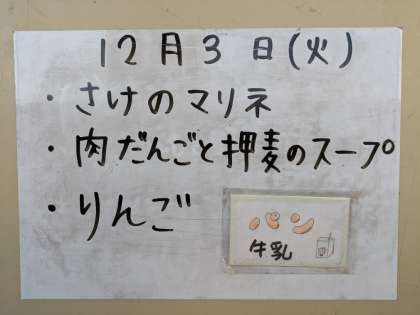 12月3日(火)
・さけのマリネ
・肉だんごと押麦のスープ
・りんご
パン
牛乳